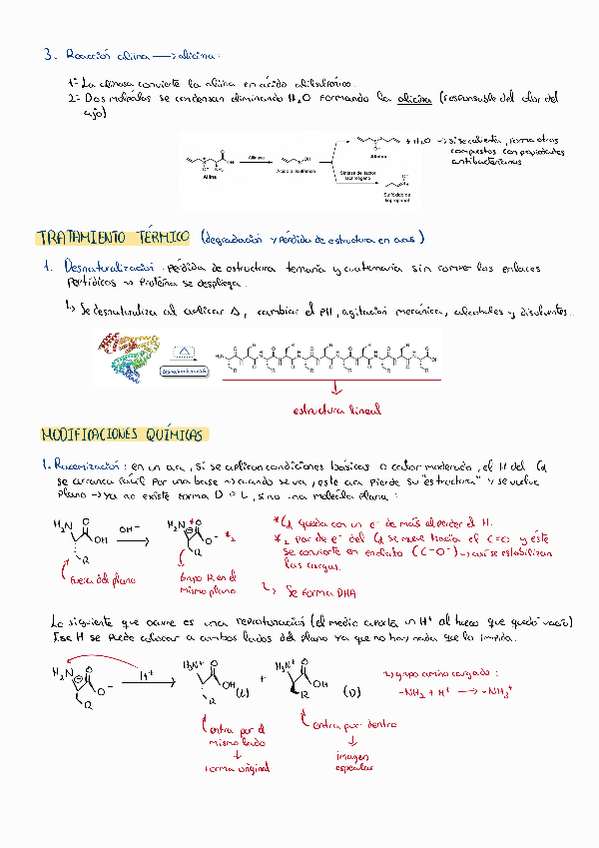 3. Reacción aliina → alicina:
1º La alinasa convierte la aliina en ácido alilsulfénico.
2º Dos moléculas se condensan eliminando H₂O formando la alicina (responsable del olor del
ajo)
+ H₂O → si se calienta, forma otros
compuestos con propiedades
antibacterianas
Aliinasa
Aliina
Alicina
Síntesis de factor
lacrimógeno
TRATAMIENTO TÉRMICO (degradación y pérdida de estructura en aas)
1. Desnaturalización: pérdida de estructura terciaria y cuaternaria sin romper los enlaces
peptídicos → proteína se despliega.
↳ Se desnaturaliza al aplicar Δ, cambiar el pH, agitación mecánica, alcoholes y disolventes..
estructura lineal
MODIFICACIONES QUÍMICAS
1. Racemización: en un aa, si se aplican condiciones básicas o calor moderado, el H del Cα
se arranca fácil por una base → cuando se va, este aa pierde su "estructura" y se vuelve
plano → ya no existe forma D o L, sino una molécula plana:
H₂N O OH R OH⁻ → H₂N O O⁻ R *₂
fuera del plano
Grupo R en el
mismo plano
* Cα queda con un e⁻ de más al perder el H.
*₂ par de e⁻ del Cα se mueve hacia el C=O y este
se convierte en enolato (C-O⁻) → así se estabilizan
las cargas.
↳ Se forma DHA
Lo siguiente que ocurre es una reprotonación (el medio aporta un H⁺ al hueco que quedó vacío)
Ese H se puede colocar a ambos lados del plano ya que no hay nada que lo impida.
H₂N O O⁻ R H⁺ → H₃N⁺ O OH R (L) + H₃N⁺ O OH R (D)
→ grupo amino cargado:
-NH₂ + H⁺ → -NH₃⁺
entra por el
mismo lado
↓
forma original
entra por dentro
↓
imagen
especular